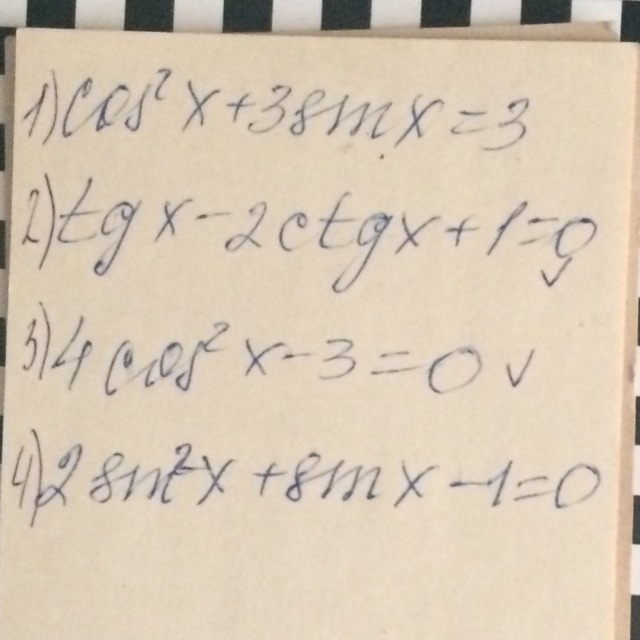 1) cos² x + 3 sin x = 3
2) tg x - 2 ctg x + 1 = 0
3) 4 cos² x - 3 = 0 v
4) 2 sin² x + sin x - 1 = 0